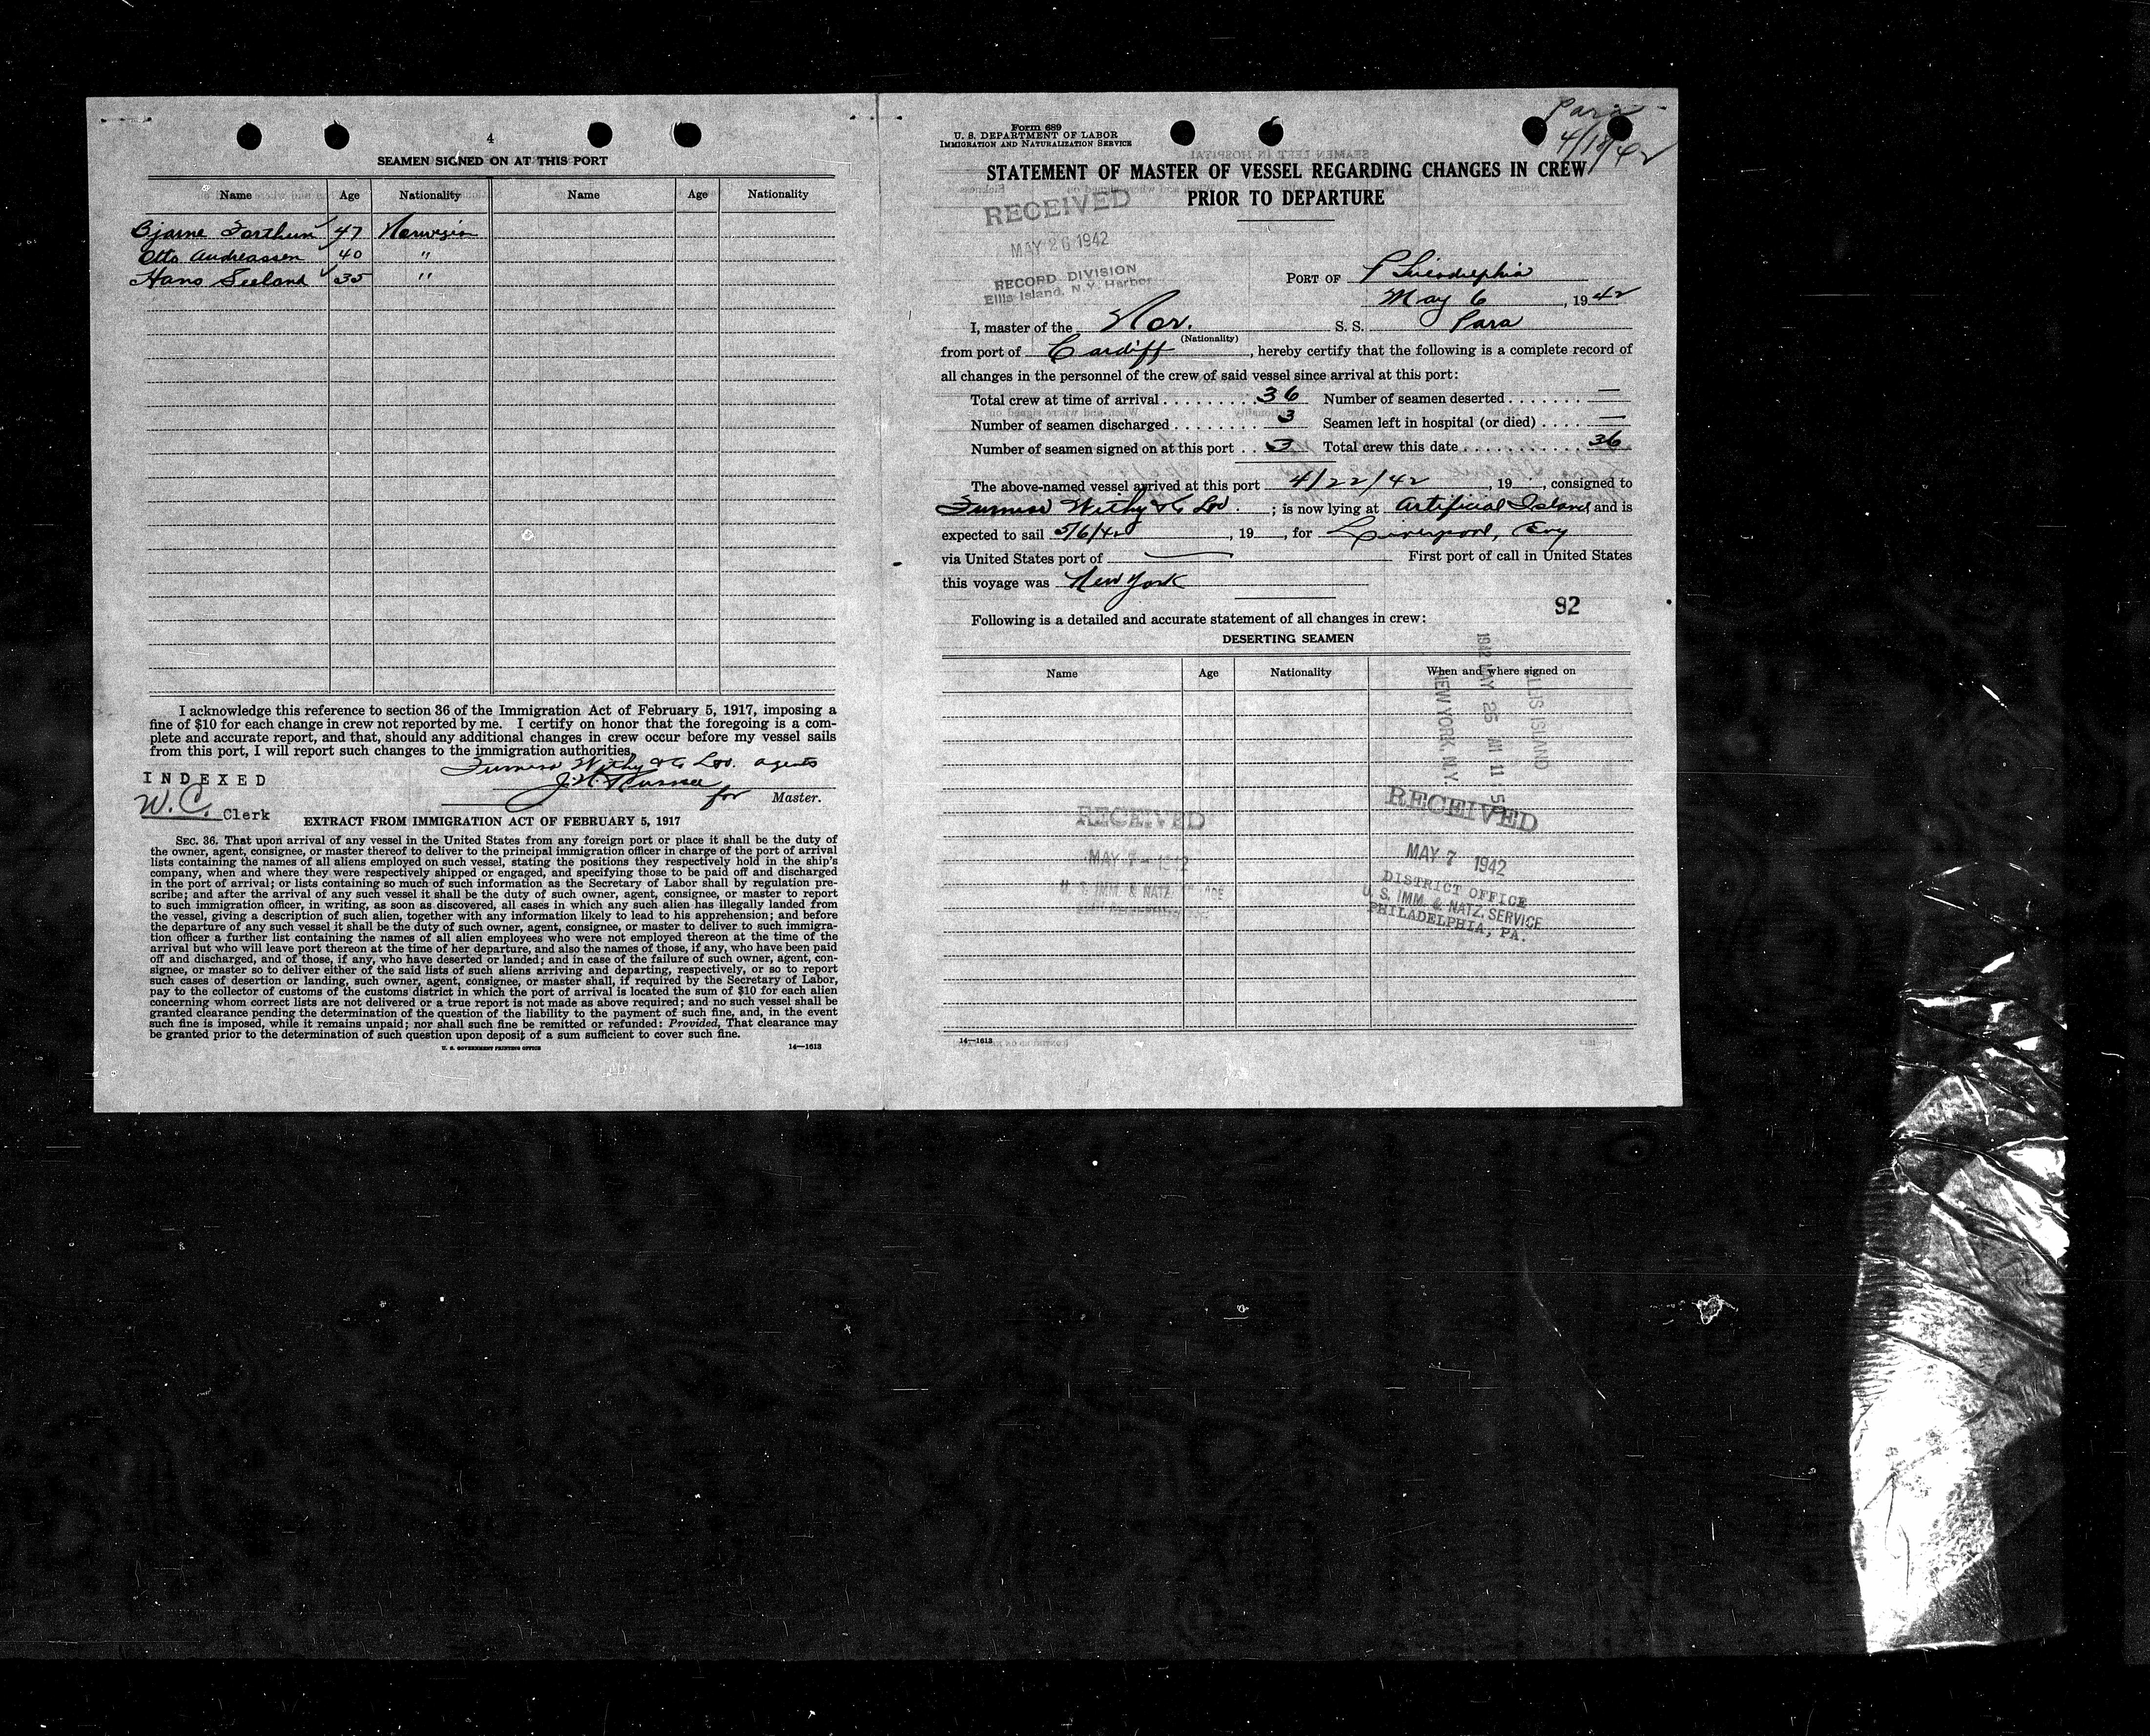 4
SEAMEN SIGNED ON AT THIS PORT
Name Age Nationality Name Age Nationality
Bjarne 47 Norwegian
Otto Andreassen 40 "
Hans Seeland 35 "
I acknowledge this reference to section 36 of the Immigration Act of February 5, 1917, imposing a
fine of $10 for each change in crew not reported by me. I certify on honor that the foregoing is a com-
plete and accurate report, and that, should any additional changes in crew occur before my vessel sails
from this port, I will report such changes to the immigration authorities.
Furness Withy & Co Ltd. agents
INDEXED
for Master.
W.C. Clerk
EXTRACT FROM IMMIGRATION ACT OF FEBRUARY 5, 1917
SEC. 36. That upon arrival of any vessel in the United States from any foreign port or place it shall be the duty of
the owner, agent, consignee, or master thereof to deliver to the principal immigration officer in charge of the port of arrival
lists containing the names of all aliens employed on such vessel, stating the positions they respectively hold in the ship's
company, when and where they were respectively shipped or engaged, and specifying those to be paid off and discharged
in the port of arrival; or lists containing so much of such information as the Secretary of Labor shall by regulation pre-
scribe; and after the arrival of any such vessel it shall be the duty of such owner, agent, consignee, or master to report
to such immigration officer, in writing, as soon as discovered, all cases in which any such alien has illegally landed from
the vessel, giving a description of such alien, together with any information likely to lead to his apprehension; and before
the departure of any such vessel it shall be the duty of such owner, agent, consignee, or master to deliver to such immigra-
tion officer a further list containing the names of all alien employees who were not employed thereon at the time of the
arrival but who will leave port thereon at the time of her departure, and also the names of those, if any, who have been paid
off and discharged, and of those, if any, who have deserted or landed; and in case of the failure of such owner, agent, con-
signee, or master so to deliver either of the said lists of such aliens arriving and departing, respectively, or so to report
such cases of desertion or landing, such owner, agent, consignee, or master shall, if required by the Secretary of Labor,
pay to the collector of customs of the customs district in which the port of arrival is located the sum of $10 for each alien
concerning whom correct lists are not delivered or a true report is not made as above required; and no such vessel shall be
granted clearance pending the determination of the question of the liability to the payment of such fine, and, in the event
such fine is imposed, while it remains unpaid; nor shall such fine be remitted or refunded: Provided, That clearance may
be granted prior to the determination of such question upon deposit of a sum sufficient to cover such fine.
U. S. GOVERNMENT PRINTING OFFICE 14—1613
Para
4/18/42
Form 689
U. S. DEPARTMENT OF LABOR
IMMIGRATION AND NATURALIZATION SERVICE
STATEMENT OF MASTER OF VESSEL REGARDING CHANGES IN CREW
PRIOR TO DEPARTURE
RECEIVED
MAY 26 1942
RECORD DIVISION
Ellis Island, N.Y. Harbor
PORT OF Philadelphia
May 6, 1942
I, master of the Nor. S. S. Para
(Nationality)
from port of Cardiff, hereby certify that the following is a complete record of
all changes in the personnel of the crew of said vessel since arrival at this port:
Total crew at time of arrival 36 Number of seamen deserted —
Number of seamen discharged 3 Seamen left in hospital (or died) —
Number of seamen signed on at this port 3 Total crew this date 36
The above-named vessel arrived at this port 4/22/42, 19 , consigned to
Furness Withy & Co Ltd. ; is now lying at Artificial Island and is
expected to sail 5/6/42, 19 , for Liverpool, Eng
via United States port of — First port of call in United States
this voyage was New York
92
Following is a detailed and accurate statement of all changes in crew:
DESERTING SEAMEN
Name Age Nationality When and where signed on
ELLIS ISLAND
1942 MAY 25 AM 11 5
NEW YORK, N.Y.
RECEIVED
MAY 7 - 1942
RECEIVED
MAY 7 1942
DISTRICT OFFICE
U. S. IMM. & NATZ. SERVICE
PHILADELPHIA, PA.
14—1613